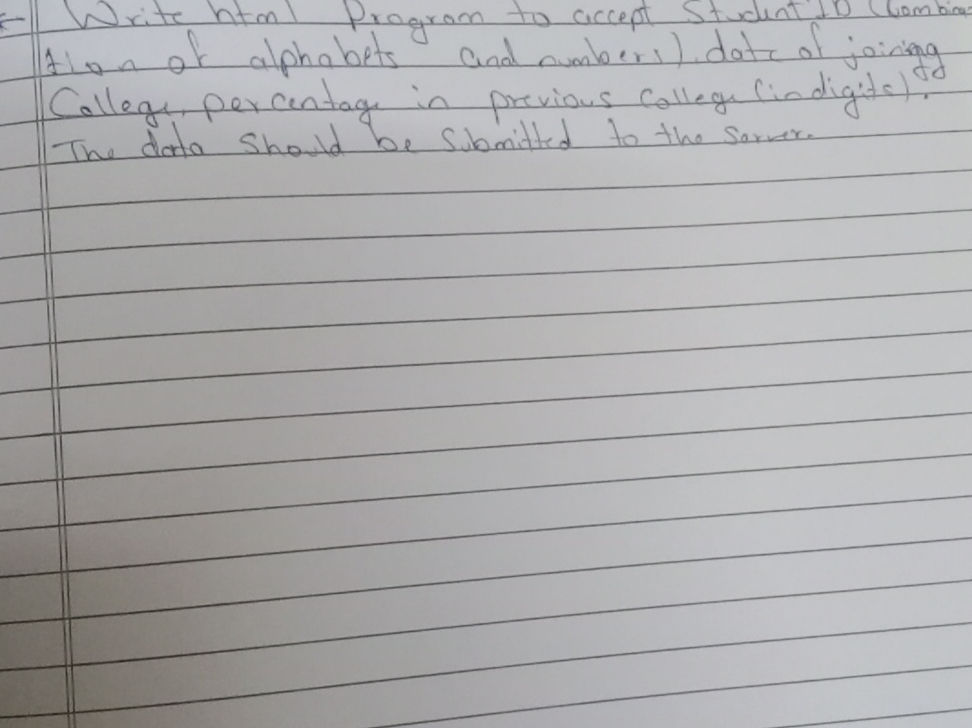 Write html Program to accept Student ID (Combina
tion of alphabets and numbers), date of joining
College, percentage in previous College (in digits).
The data should be Submitted to the Server.